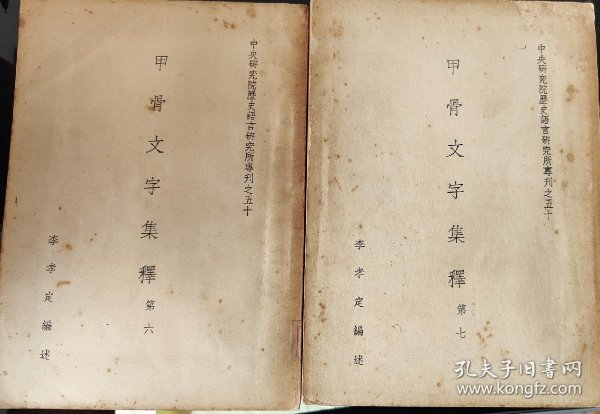 中央研究院歷史語言研究所專刊之五十
甲骨文字集釋 第六
李孝定編述
中央研究院歷史語言研究所專刊之五十
甲骨文字集釋 第七
李孝定編述
孔夫子旧书网
www.kongfz.com